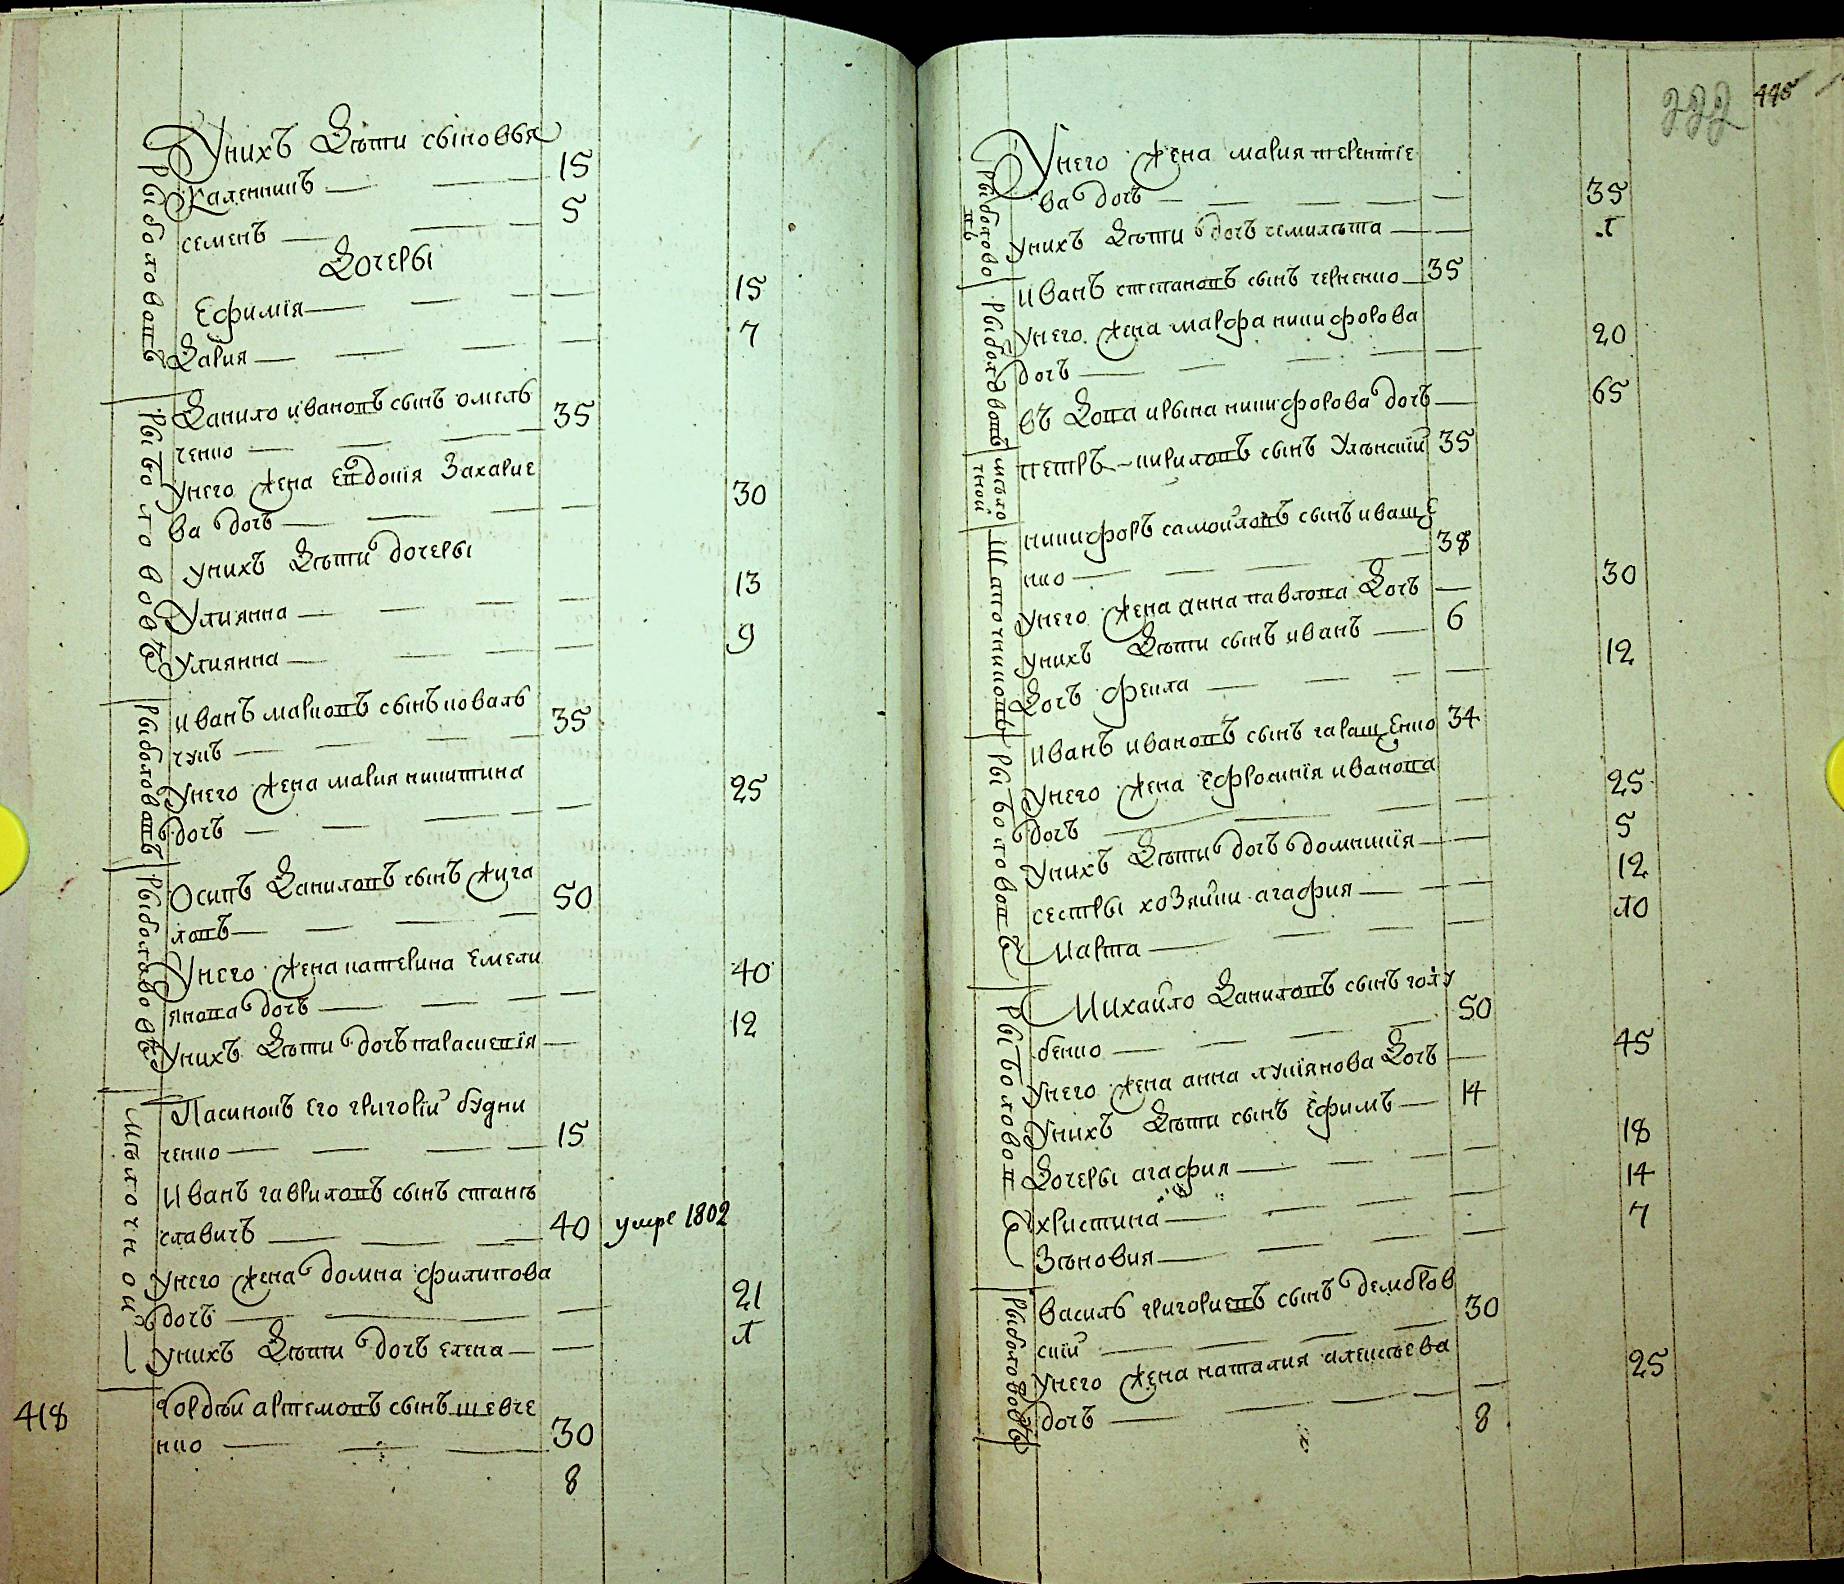 Рыболововъ
Унихъ Дѣти сыновья
Каленникъ — 15
семенъ — 5
Дочеры
Ефимія — 15
Дарія — 7
Рыболововъ
Данило ивановъ сынъ омель
ченко — 35
унего жена Евдокія Захарие
ва дочь — 30
унихъ Дѣти дочеры
Улиянна — 13
Улиянна — 9
Рыболововъ
иванъ марковъ сынъ коваль
чукъ — 35
унего жена мария никитина
дочь — 25
Рыболововъ
Осипъ Даниловъ сынъ жига
ловъ — 50
Унего жена катерина емели
янова дочь — 40
Унихъ Дѣти дочь параскевія — 12
Мѣлочной
Пасинокъ его григорій будни
ченко — 15
иванъ гавриловъ сынъ станѣ
славичь — 40 умре 1802
унего жена домна филипова
дочь — 21
унихъ Дѣти дочь елена — 1
418
гордѣй артемовъ сынъ шевче
нко — 30
8
222 445
Рыболово
въ
Унего жена мария терентіе
ва дочь — 35
унихъ Дѣти дочь семилѣта — 1
Рыболововъ
иванъ степановъ сынъ черненко — 35
унего жена марфа никифорова
дочь — 20
въ Дова ирына никифорова дочь — 65
мѣло
чной
петръ кириловъ сынъ Улѣнскій 35
Шапочниковъ
никифоръ самойловъ сынъ иваще
нко — 38
унего жена анна павлова Дочь — 30
унихъ Дѣти сынъ иванъ — 6
Дочь фекла — 12
Рыболововъ
иванъ ивановъ сынъ гаращенко 34
унего жена Ефросинія иванова
дочь — 25
унихъ Дѣти дочь домникія — 5
сестры хозяйки агафия — 12
Марта — 10
Рыболововъ
Михайло Даниловъ сынъ голу
бенко — 50
унего жена анна лукіянова Дочь — 45
унихъ Дѣти сынъ Ефимъ — 14
Дочеры агафия — 18
христина — 14
Зѣновия — 7
Рыболововъ
василь григориевъ сынъ дембров
скій — 30
унего жена наталия алексѣева
дочь — 25
8